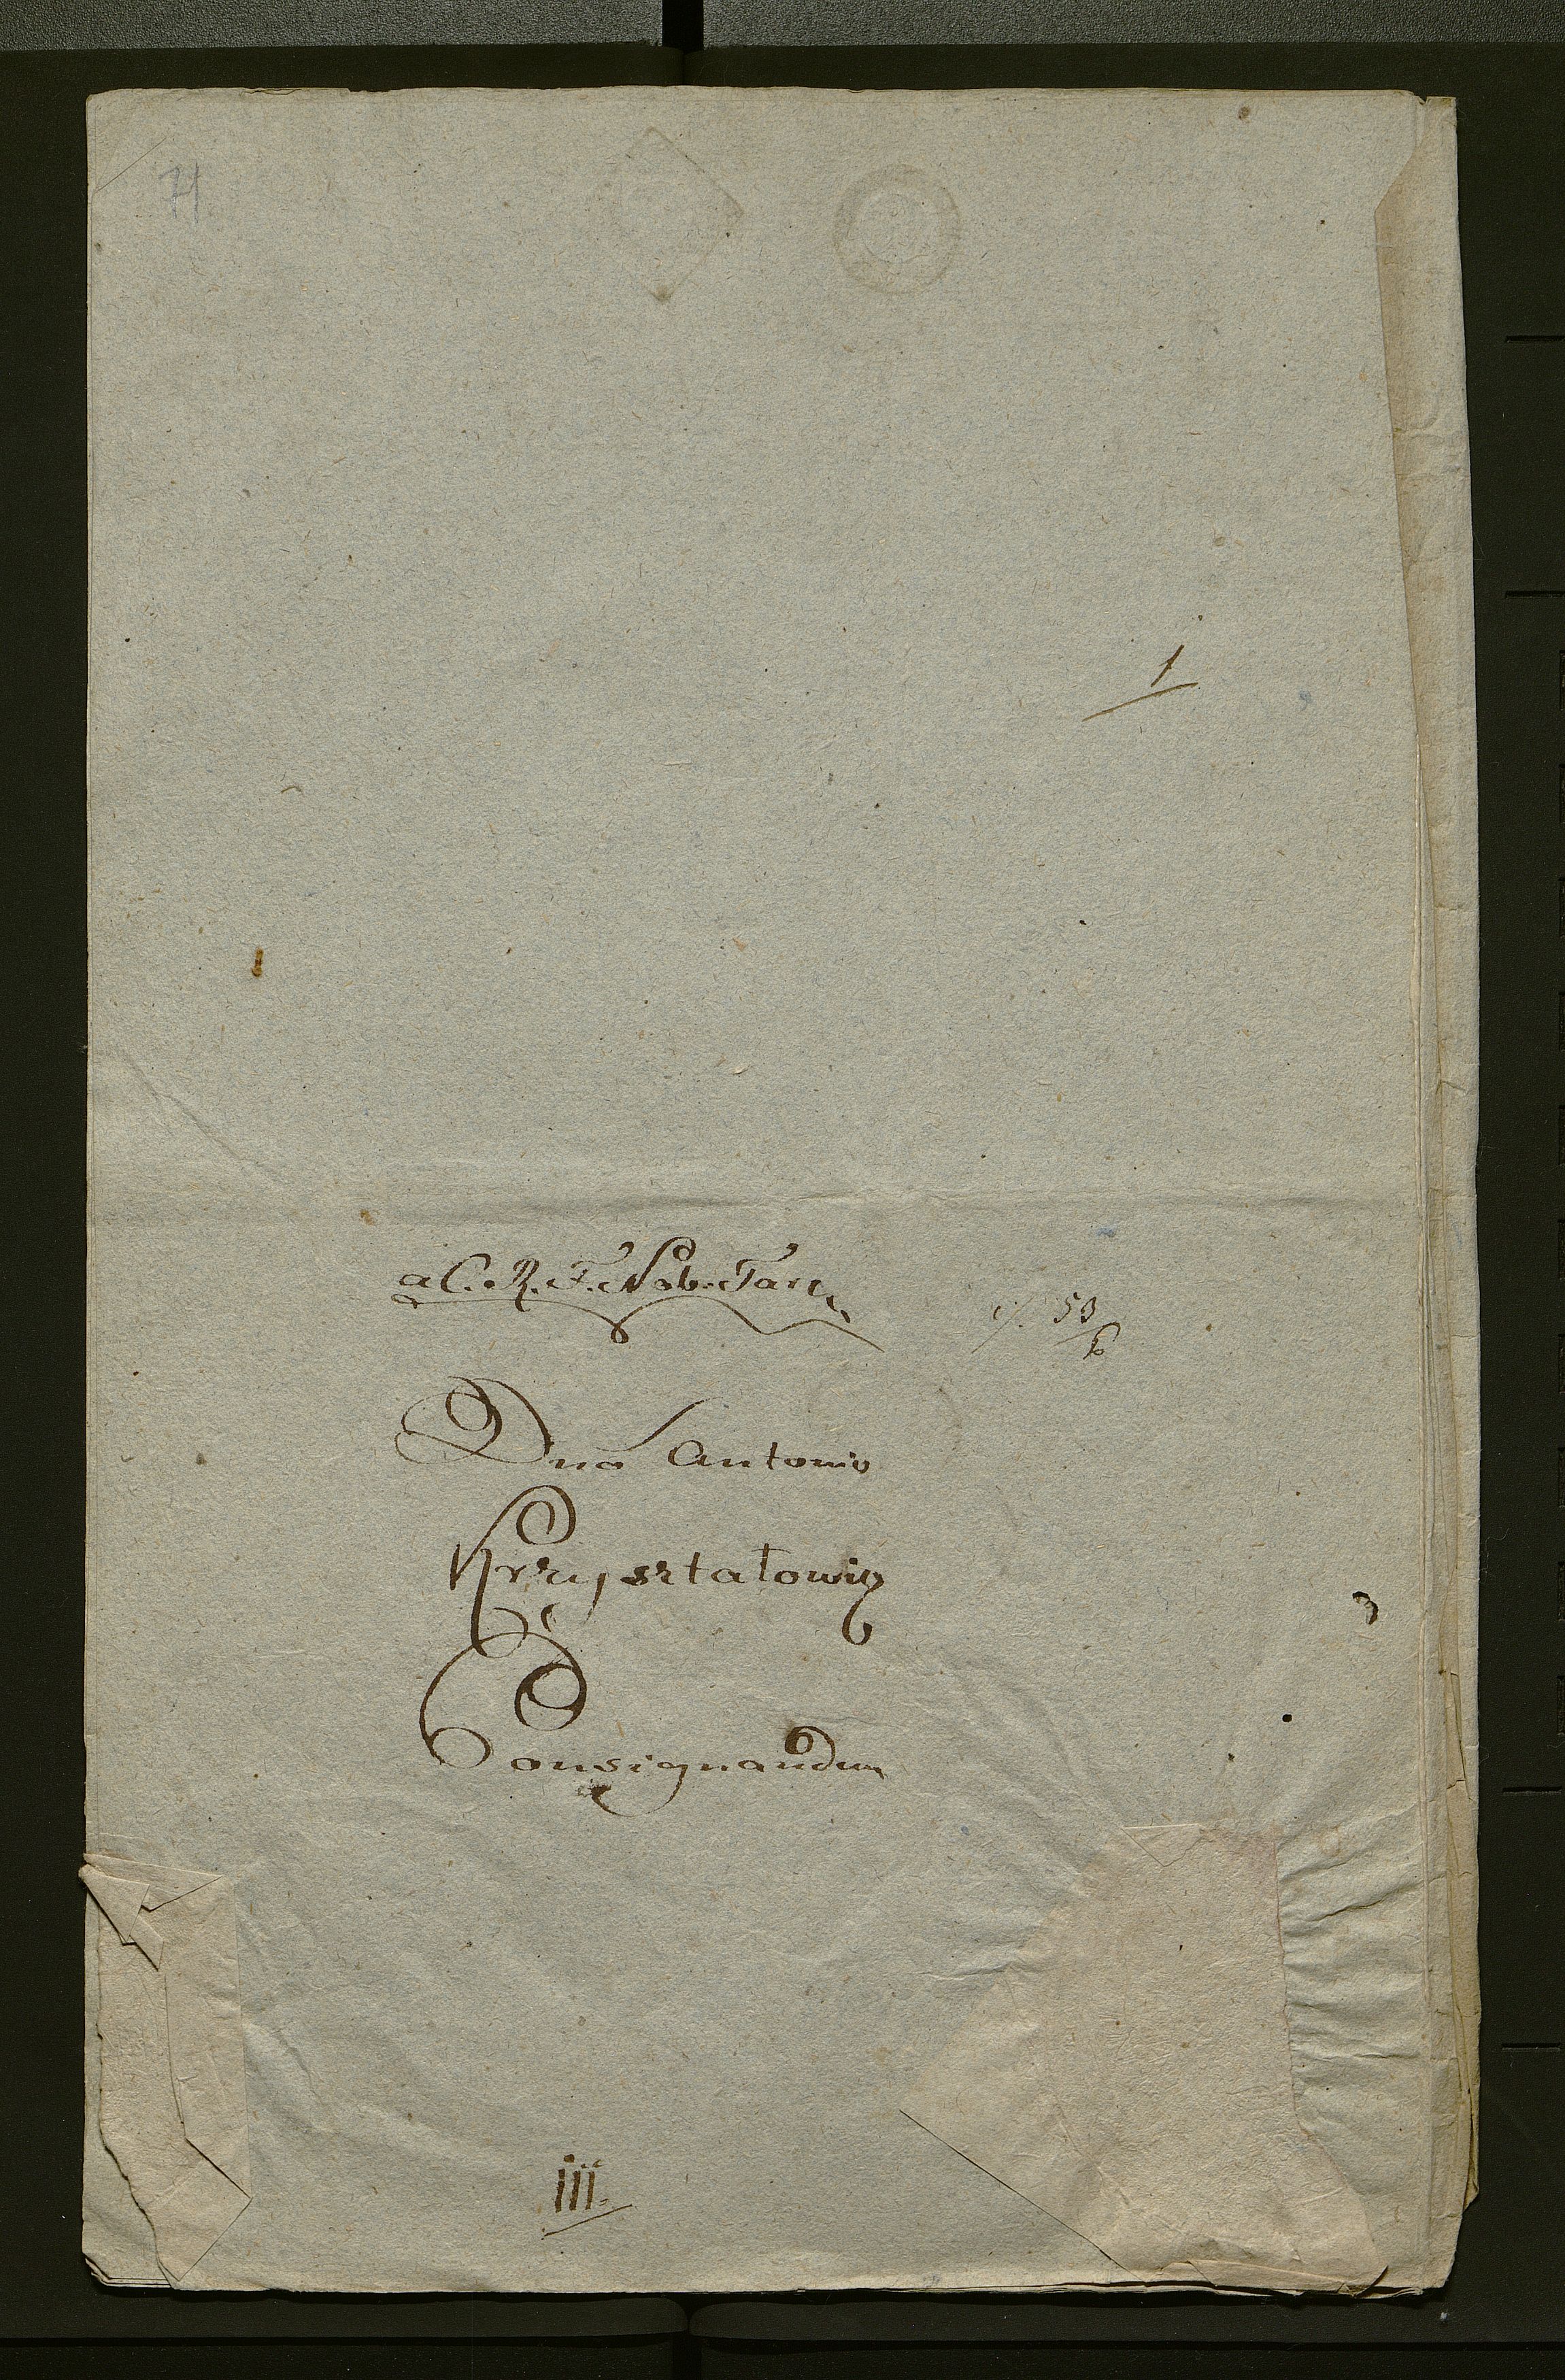 71
1
a C. R. F. Nob. Tarc.
53/6
Dno Antonio
Krzysztalowicz
Consignandum
iii.